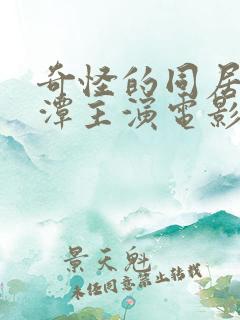 奇怪的同居
潭主演电影
景天魁
未经同意禁止转载